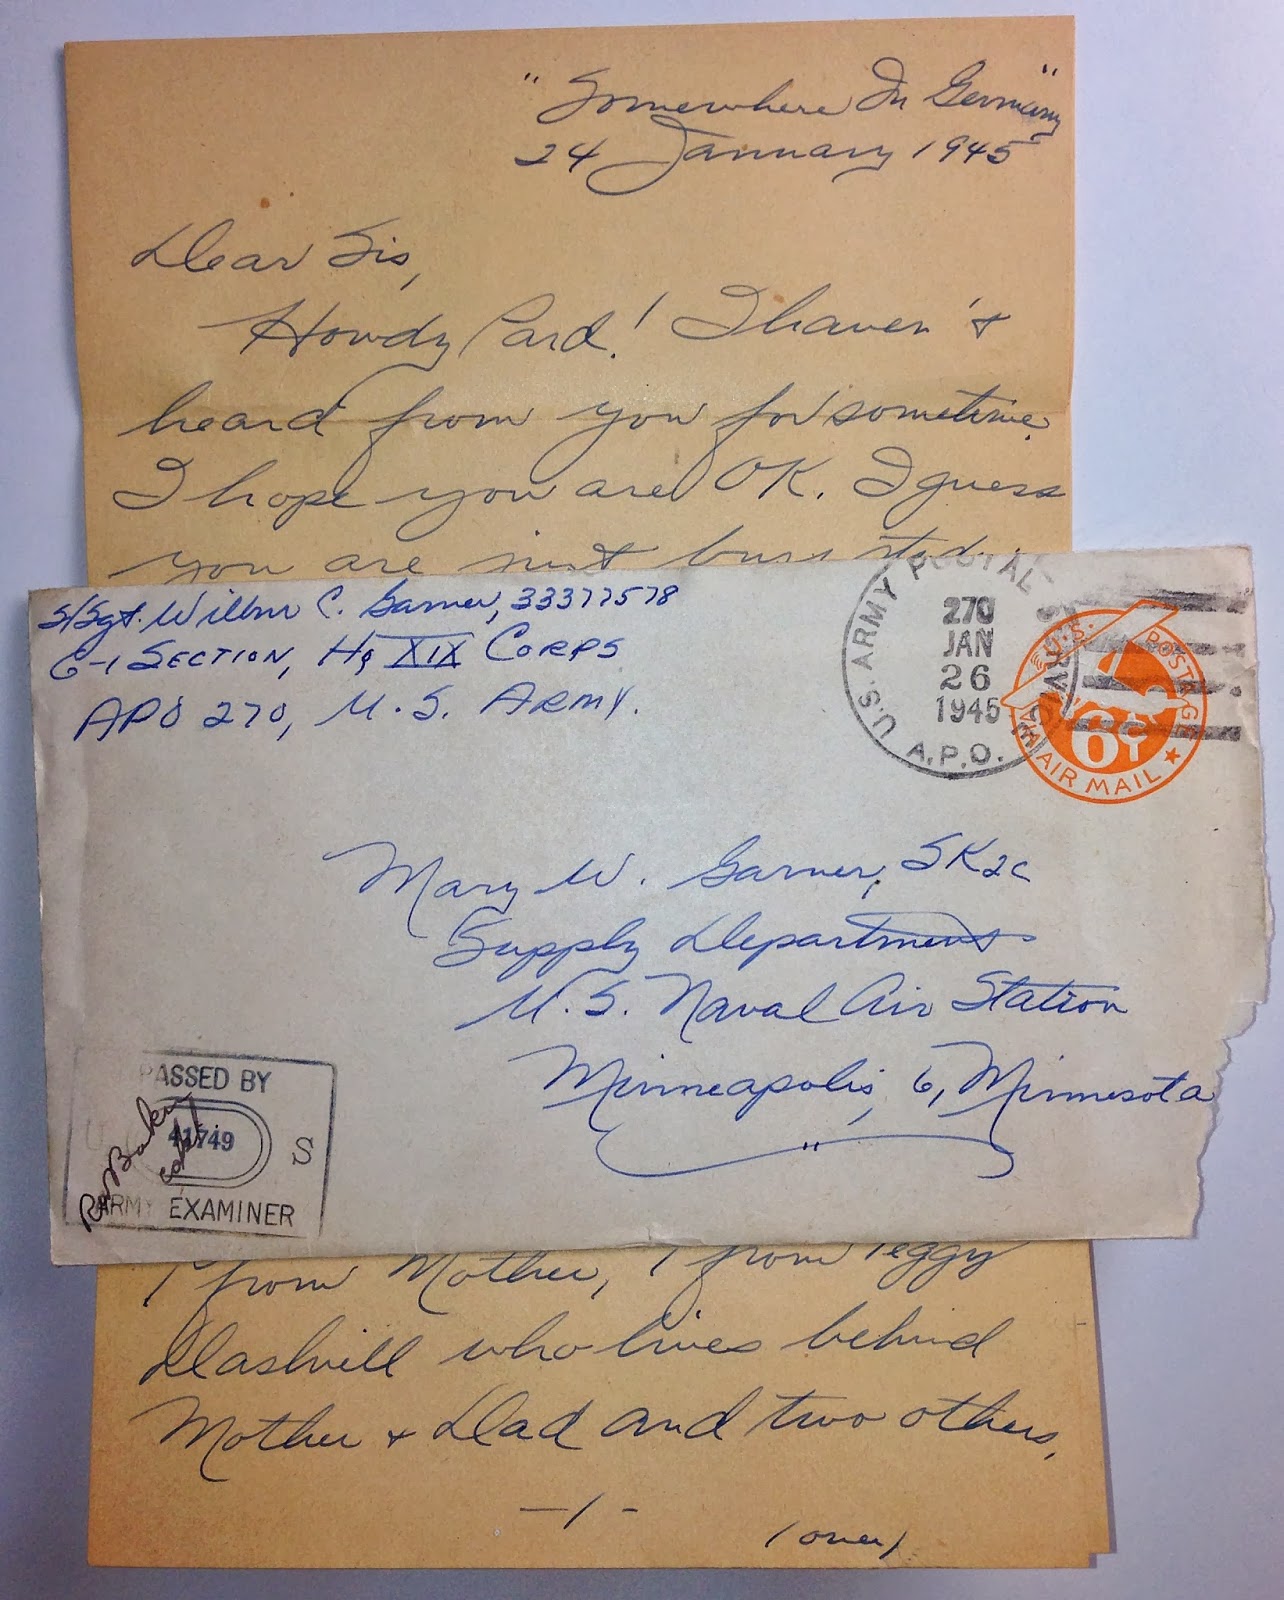 "Somewhere In Germany"
24 January 1945
Dear Sis,
Howdy Pard! I haven't
heard from you for sometime.
I hope you are OK. I guess
you are just busy
S/Sgt. Wilbur C. Garner, 33377578
G-1 SECTION, Hq XIX CORPS
APO 270, U. S. ARMY.
U.S. ARMY POSTAL SERVICE
270
JAN
26
1945
A.P.O.
U.S. POSTAGE
6¢
VIA AIR MAIL
Mary W. Garner, SK2c
Supply Department
U. S. Naval Air Station
Minneapolis, 6, Minnesota
PASSED BY
U 41749 S
ARMY EXAMINER
from Mother, 1 from Peggy
Dashiell who lives behind
Mother & Dad and two others,
-1-
(over)